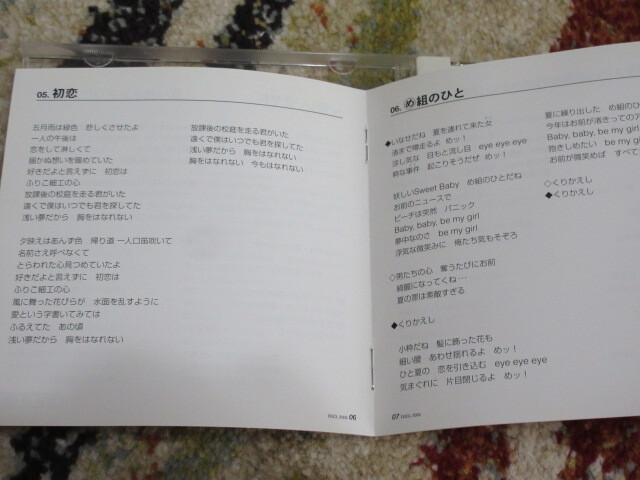 05. 初恋
五月雨は緑色　悲しくさせたよ
一人の午後は
恋をして淋しくて
届かぬ想いを暖めていた
好きだよと言えずに　初恋は
ふりこ細工の心
放課後の校庭を走る君がいた
遠くで僕はいつでも君を探してた
浅い夢だから　胸をはなれない
夕映えはあんず色　帰り道 一人口笛吹いて
名前さえ呼べなくて
とらわれた心見つめていたよ
好きだよと言えずに　初恋は
ふりこ細工の心
風に舞った花びらが　水面を乱すように
愛という字書いてみては
ふるえてた　あの頃
浅い夢だから　胸をはなれない
放課後の校庭を走る君がいた
遠くで僕はいつでも君を探してた
浅い夢だから　胸をはなれない
胸をはなれない　今もはなれない
06
06. め組のひと
◆いなせだね　夏を連れて来た女
渚まで噂走るよ　めッ！
涼し気な　目もと流し目　eye eye eye
粋な事件　起こりそうだぜ　めッ！
妖しいSweet Baby　め組のひとだね
お前のニュースで
ビーチは突然　パニック
Baby, baby, be my girl
夢中なのさ　be my girl
浮気な微笑みに　俺たち気もそぞろ
◇男たちの心　奪うたびにお前
綺麗になってくね…
夏の罪は素敵すぎる
◆くりかえし
小粋だね　髪に飾った花も
細い腰　あわせ揺れるよ　めッ！
ひと夏の　恋を引き込む　eye eye eye
気まぐれに　片目閉じるよ　めッ！
夏に繰り出した　め組の
今年はお前が渚きっての
Baby, baby, be my
抱きしめたい　be my
お前が微笑めば　すべて
◇くりかえし
◆くりかえし
07